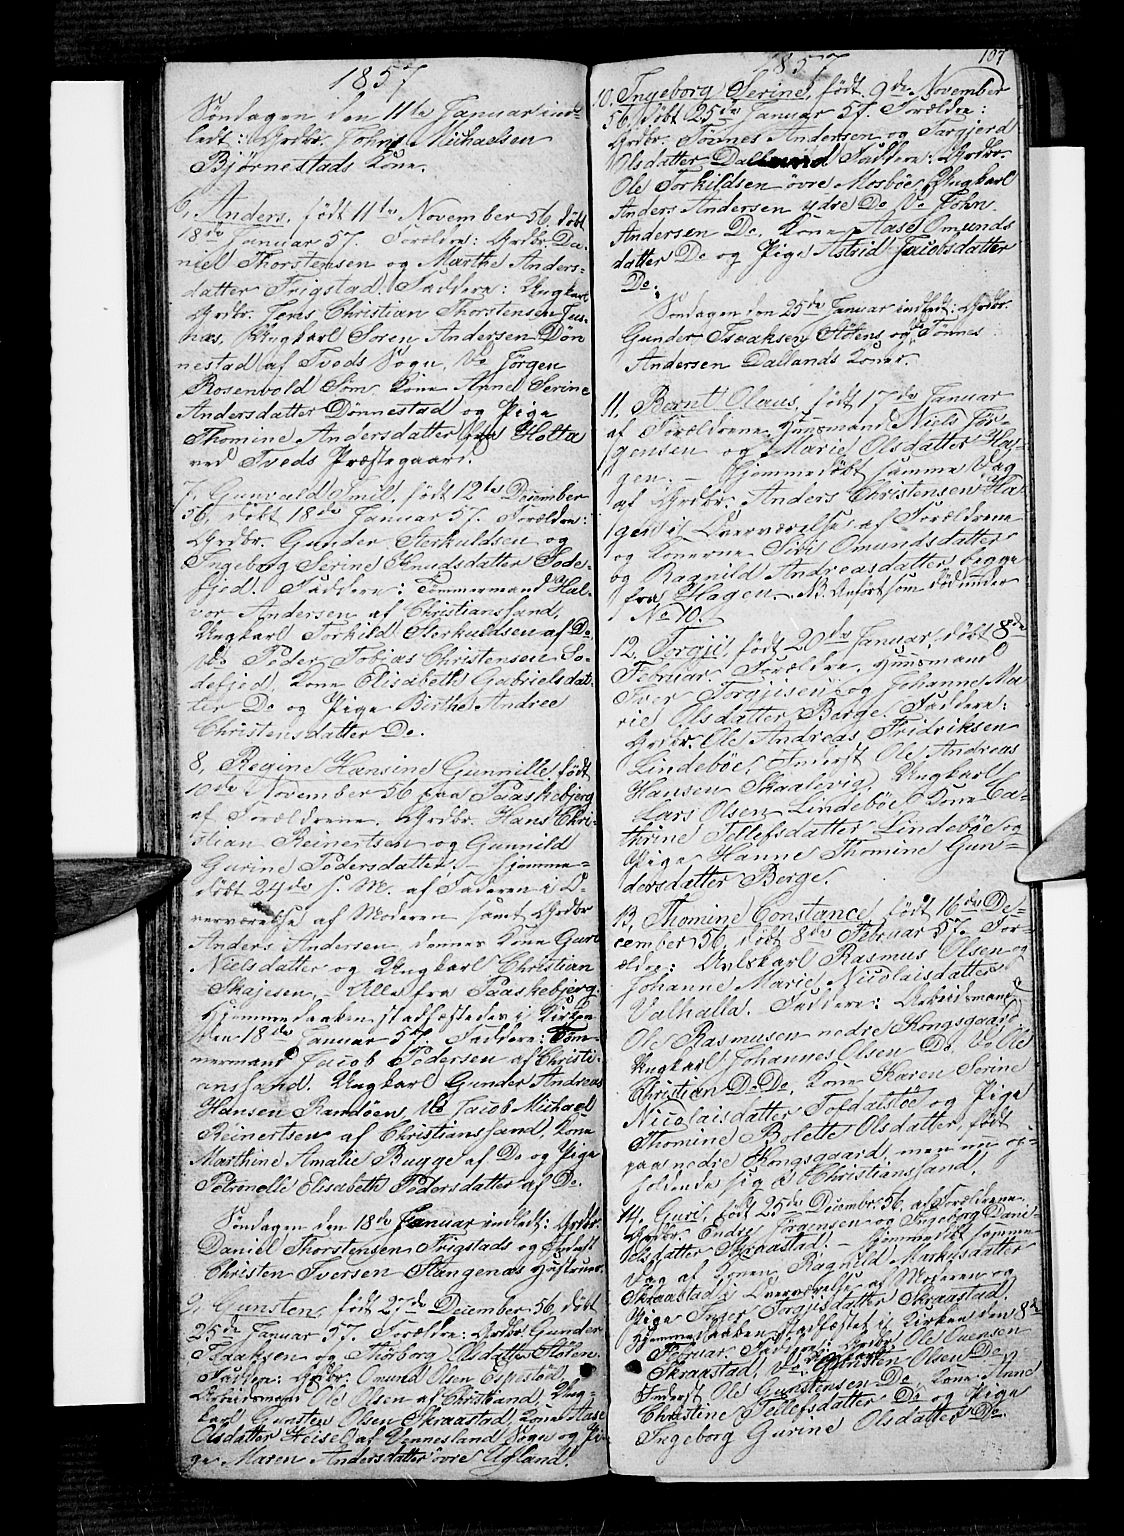 1857
Søndagen den 11te Januar ind-
ledt: Grdbr. Johns Michaelsen
Bjørnestads Kone.
6, Anders, født 11te November 56, døbt
18de Januar 57. Forældre: Grdbr. Da-
niel Thorstensen og Marthe Anders-
datter Frigstad. Faddere: Ungkarl
Grdbr. Jens Christian Thorstensen
Ungkarl Søren Andersen Døn-
nestad af Tveds Sogn, Do Jørgen
Rosenvold Søm, Kone Anne Serine
Andersdatter Dønnestad og Pige
Thomine Andersdatter Holta
ved Tveds Præstegaard.
7, Gunvald Emil, født 12te December
56, døbt 18de Januar 57. Forældre:
Grdbr. Gunder Herkuldsen og
Ingeborg Serine Knudsdatter Tode-
fjed. Faddere: Tømmermand Hal-
vor Andersen af Christianssand,
Ungkarl Torkild Herkuldsen af Do,
Do Peder Tobias Christensen To-
defjed, Kone Elisabeth Gabrielsdat-
ter Do og Pige Birthe Andree
Christensdatter Do.
8, Regine Hansine Gunnille, født
10de November 56 paa Paaskebjerg
af Forældrene Grdbr. Hans Chri-
stian Reinertsen og Gunnild
Gurine Pedersdatter. – Hjemme-
døbt 24de s. M. af Faderen i O-
verværelse af Moderen samt Grdbr
Anders Andersen, dennes Kone Guri
Nielsdatter og Ungkarl Christian
Skajesen – Alle fra Paaskebjerg.
Hjemmedaaben stadfæstedes i Kirken
den 18de Januar 57. Faddere: Tøm-
mermand Jacob Pedersen af Christi-
anssand, Ungkarl Gunder Andreas
Hansen Randøen, Do Jacob Michael
Reinertsen af Christianssand, Kone
Marthine Amalie Bugge af Do og Pige
Petronelle Elisabeth Pedersdatter af Do.
Søndagen den 18de Januar indledt: Grdbr.
Daniel Thorstensen Frigstads og Inderst
Christen Iversen Stangenes Hustruer.
9, Gunsten, født 27de December 56, døbt
25de Januar 57. Forældre: Grdbr. Gunder
Isaaksen og Thorborg Olsdatter Støten.
Faddere: Grdbr. Omund Olsen Espestøl,
Arbeidsmand Ole Olsen af Christiand, Ung-
karl Gunsten Olsen Skraastad, Kone Aase
Olsdatter Heisel af Vennesland Sogn og Pi-
ge Maren Andersdatter øvre Ugland.
1857
107
10, Ingeborg Serine, født 9de November
56, døbt 25de Januar 57. Forældre:
Grdbr. Tønnes Andersen og Targjerd
Olsdatter Dalland. Faddere: Grdbr.
Ole Torkildsen øvre Mosbøe, Ungkarl
Anders Andersen ydre Do, Do John
Andersen Do, Kone Aase Omunds
datter Do og Pige Astrid Jacobsdatter
Do.
Søndagen den 25de Januar indledt: Grdbr.
Gunder Isaaksen Støtens og Tønnes
Andersen Dallands Koner.
11, Bernt Olaus, født 17de Januar
af Forældrene Huusmand Niels Jør-
gensen og Marie Olsdatter Ha-
gen. – Hjemmedøbt samme Dag
af Grdbr. Anders Christensen Ha-
gen i Overværelse af Forældrene
og Konerne Siri Omundsdatter
og Ragnild Andreasdatter, begge
fra Hagen. NB. Anført som død under
No 10.
12, Torgji, født 20de Januar, døbt 8de
Februar. Forældre: Huusmand
Iver Torgjisen og Johanne Ma-
rie Olsdatter Berge. Faddere:
Grdbr. Ole Andreas Fridriksen
Lindebøe, Inderst Ole Andreas
Hansen Skaalevig, Ungkarl
Lars Olsen Lindebøe, Kone Ca-
thrine Tollefsdatter Lindebøe og
Pige Hanne Thomine Gun-
dersdatter Berge.
13, Thomine Constance, født 16de De-
cember 56, døbt 8de Februar 57. For-
ældre: Avlskarl Rasmus Olsen og
Johanne Marie Nicolaisdatter
Valhalla. Faddere: Arbeidsmand
Ole Rasmusen nedre Kongsgaard,
Ungkarl Johannes Olsen Do, Do Ole
Christian Do Do, Kone Karen Serine
Nicolaisdatter Tofdalsbøe og Pige
Thomine Bolette Olsdatter, født
paa nedre Kongsgaard, men nu op-
holdende sig i Christianssand.
14, Guri, født 25de December 56, af Forældrene
Grdbr. Endre Jørgensen og Ingeborg Dani-
elsdatter Skraastad. – Hjemmedøbt samme
Dag af Konen Ragnild Markusdatter
Skraastad i Overværelse af Moderen og
Pige Inger Torgjisdatter Skraastad.
Hjemmedaaben stadfæstet i Kirken den 8de
Februar. Faddere: Grdbr. Ole Evensen
Skraastad, Do Gunsten Olsen Do,
Inderst Ole Gunstensen Do, Kone Anne
Christine Tellefsdatter Do og Pige
Ingeborg Gurine Olsdatter Do.